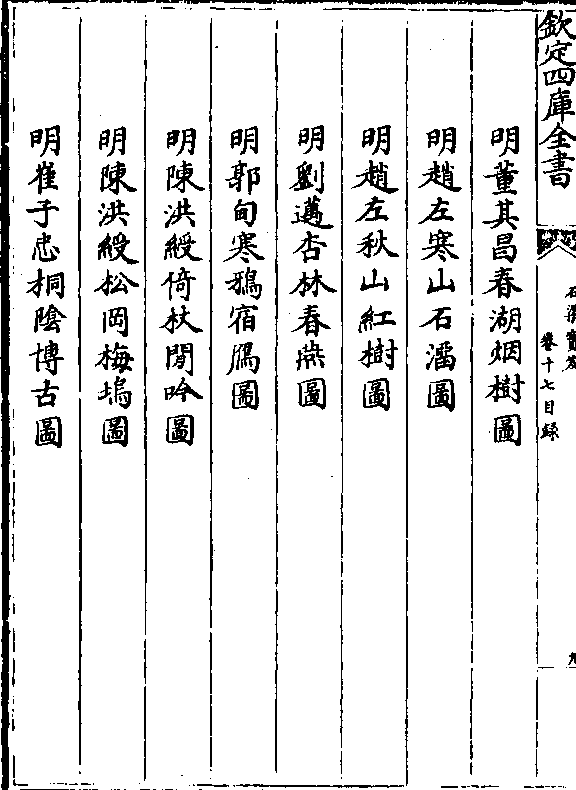 欽定四庫全書
石渠寶笈
卷十七目錄
明董其昌春湖烟樹圖
明趙左寒山石溜圖
明趙左秋山紅樹圖
明劉邁杏林春燕圖
明郭甸寒鴉宿鴈圖
明陳洪綬倚杖閒吟圖
明陳洪綬松岡梅塢圖
明崔子忠桐陰博古圖